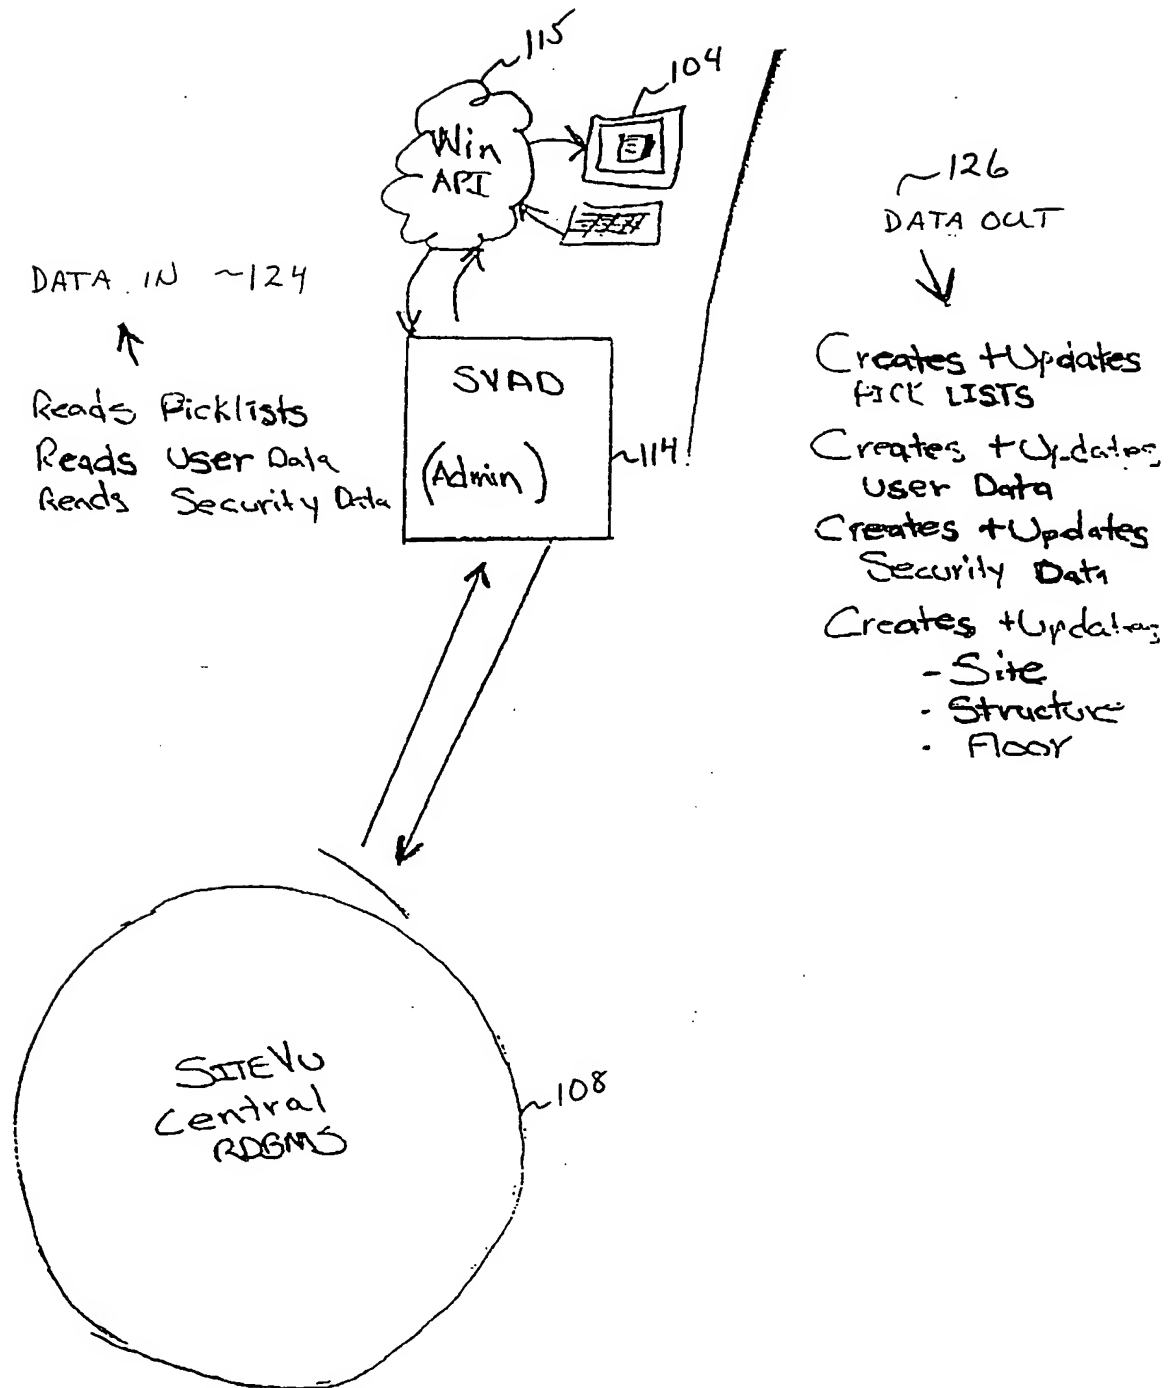 115
104
Win
API
126
DATA OUT
DATA IN ~124
Reads Picklists
Reads User Data
Reads Security Data
SVAD
(Admin)
114
Creates + Updates
PICK LISTS
Creates + Updates
User Data
Creates + Updates
Security Data
Creates + Updates
- Site
- Structure
- Floor
SITEVU
Central
RDBMS
108